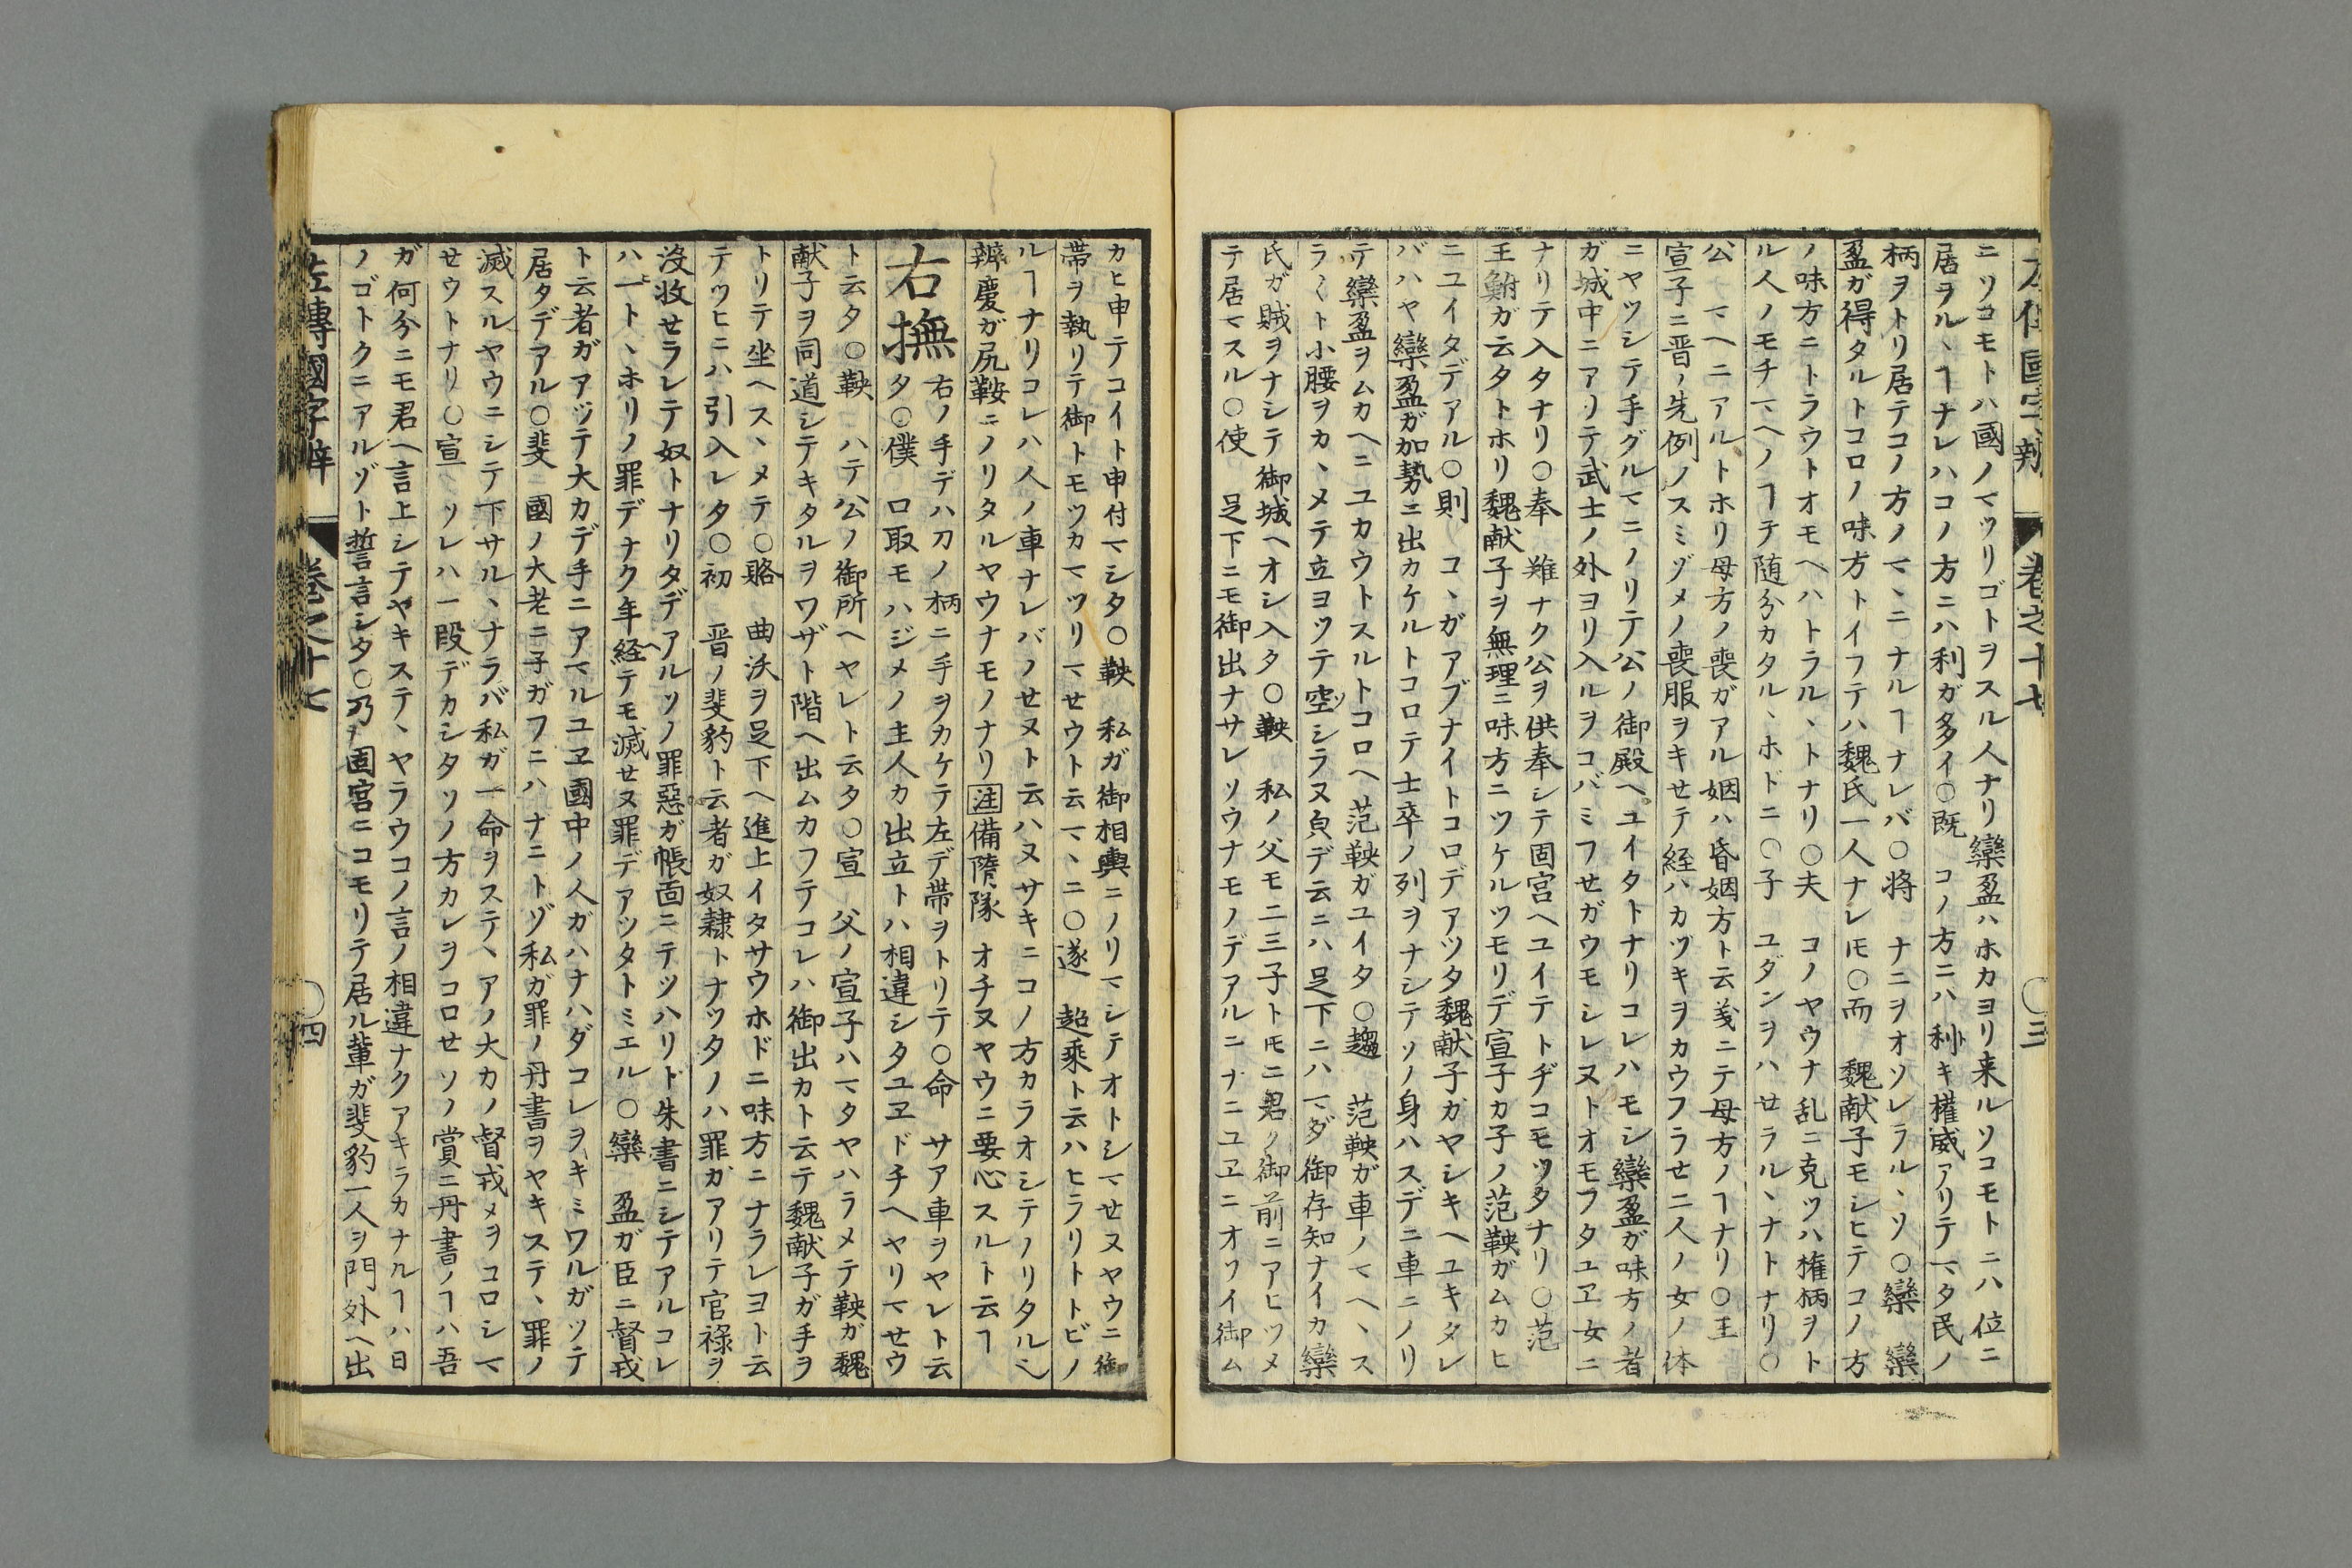 左傳國字辨 卷之十七 〇三
ニソコモトハ國ノマツリゴトヲスル人ナリ欒盈ハホカヨリ来ルソコモトニハ位ニ
居ラル、ヿナレハコノ方ニハ利ガ多イ〇既 コノ方ニハ利キ權威アリテマタ民ノ
柄ヲトリ居テコノ方ノマ、ニナルヿナレバ〇将 ナニヲオソレラル、ソ〇欒 欒
盈ガ得タルトコロノ味方トイフテハ魏氏一人ナレㇳモ〇而 魏献子モシヒテコノ方
ノ味方ニトラウトオモヘハトラル、トナリ〇夫 コノヤウナ乱ニ克ツハ権柄ヲト
ル人ノモチマヘノヿテ随分カタル、ホドニ〇子 ユダンヲハせラル、ナトナリ〇
公 マヘニアルトホリ母方ノ喪ガアル姻ハ昏姻方ト云義ニテ母方ノヿナリ〇王
宣子ニ晋ノ先例ノスミゾメノ喪服ヲキセテ絰ハカヅキヲカウフラせ二人ノ女ノ体
ニヤツシテ手グルマニノリテ公ノ御殿ヘユイタトナリコレハモシ欒盈ガ味方ノ者
ガ城中ニアリテ武士ノ外ヨリ入ルヲコバミフせガウモシレヌトオモフタユヱ女ニ
ナリテ入タナリ〇奉 難ナク公ヲ供奉シテ固宮ヘユイテトヂコモツタナリ〇范
王鮒ガ云タトホリ魏献子ヲ無理ニ味方ニツケルツモリデ宣子カ子ノ范鞅ガムカヒ
ニユイタデアル〇則 コ、ガアブナイトコロデアツタ魏献子ガヤシキヘユキタレ
バハヤ欒盈ガ加勢ニ出カケルトコロテ士卒ノ列ヲナシテソノ身ハスデニ車ニノリ
テ欒盈ヲムカヘニユカウトスルトコロヘ范鞅ガユイタ〇趨 范鞅ガ車ノマヘ、ス
ラ〱ト小腰ヲカ、メテ立ヨツテ空シラヌ皃デ云ニハ足下ニハマダ御存知ナイカ欒
氏ガ賊ヲナシテ御城ヘオシ入タ〇鞅 私ノ父モ二三子トㇳモニ君ノ御前ニアヒツメ
テ居マスル〇使 足下ニモ御出ナサレソウナモノデアルニナニユヱニオソイ御ム
カヒ申テコイト申付マシタ〇鞅 私ガ御相輿ニノリマシテオトシマせヌヤウニ御
帯ヲ執リテ御トモツカマツリマせウト云マ、ニ〇遂 超乗ト云ハヒラリトトビノ
ルヿナリコレハ人ノ車ナレバノせヌト云ハヌサキニコノ方カラオシテノリタルヘ
辨慶ガ尻鞍ニノリタルヤウナモノナリ 注 備隋隊 オチヌヤウニ要心スルト云ヿ
右撫 右ノ手デハ刀ノ柄ニ手ヲカケテ左デ帯ヲトリテ〇命 サア車ヲヤレト云
タ〇僕 口取モハジメノ主人カ出立トハ相違シタユヱドチヘヤリマせウ
ト云タ〇鞅 ハテ公ノ御所ヘヤレト云タ〇宣 父ノ宣子ハマタヤハラメテ鞅ガ魏
献子ヲ同道シテキタルヲワザト階ヘ出ムカフテコレハ御出カト云テ魏献子ガ手ヲ
トリテ坐ヘス、メテ〇賂 曲沃ヲ足下ヘ進上イタサウホドニ味方ニナラレヨト云
テツヒニハ引入レタ〇初 晋ノ斐豹ト云者ガ奴隷トナツタノハ罪ガアリテ官祿ヲ
沒收せラレテ奴トナリタデアルソノ罪惡ガ帳面ニテツハリト朱書ニシテアルコレ
ハ一ト、ホリノ罪デナク年経テモ滅せヌ罪デアツタトミエル〇欒 盈ガ臣ニ督戎
ト云者ガアツテ大カデ手ニアマルユヱ國中ノ人ガハナハダコレヲキミワルガツテ
居タデアル〇斐 國ノ大老ニ子ガフニハ ナニトゾ私ガ罪ノ丹書ヲヤキステ、罪ノ
滅スルヤウニシテ下サル、ナラバ私ガ一命ヲステ、アノ大カノ督戎メヲコロシマ
せウトナリ〇宣 ソレハ一段デカシタソノ方カレヲコロせソノ賞ニ丹書ノヿハ吾
ガ何分ニモ君ヘ言上シテヤキステ、ヤラウコノ言ノ相違ナクアキラカナルヿハ日
ノゴトクニアルゾト誓言シタ〇乃 固宮ニコモリテ居ル輩ガ斐豹一人ヲ門外ヘ出
左傳國字辨 卷之十七 〇四